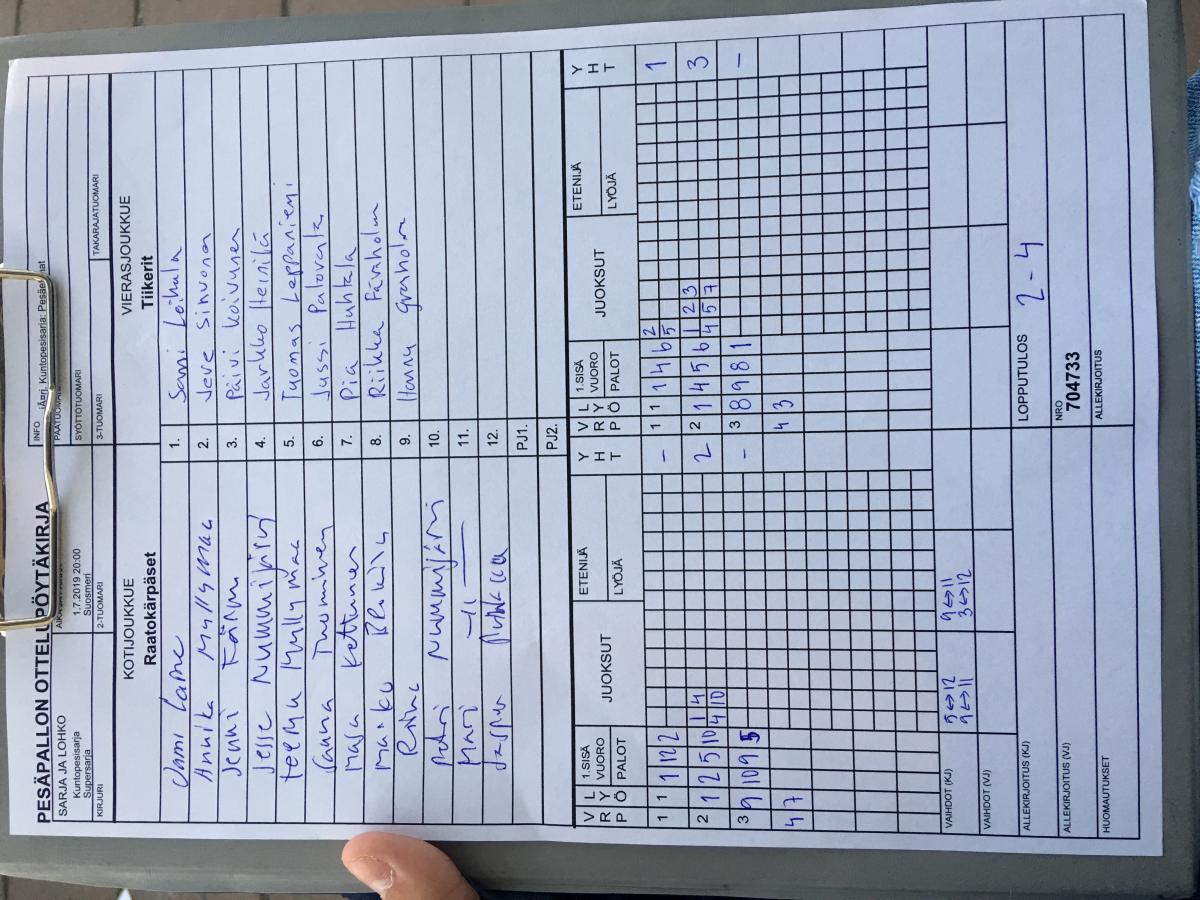 PESÄPALLON OTTELUPÖYTÄKIRJA
SARJA JA LOHKO
Kuntopesisarja
Supersarja
1.7.2019 20:00
Suosmeri
INFO
Kuntopesisarja: Pesäe
KIRJURI
2-TUOMARI
SYÖTTÖTUOMARI
3-TUOMARI
TAKARAJATUOMARI
KOTIJOUKKUE
Raatokärpäset
VIERASJOUKKUE
Tiikerit
1. Sami Leikala
Annika Myllymaa 2. Jere Sinvonen
Jenni 3. Päivi Koivunen
Jesse Nummijärvi 4. Jarkko Heinilä
Teemu Myllymaa 5. Tuomas Leppäniemi
Sanna Tuominen 6. Jussi Palovala
Masa Kettunen 7. Pia Huhtala
8. Riikka Fäväholm
9. Hannu Granholm
Petri Nummijärvi 10.
Mari -11- 11.
12.
PJ1.
PJ2.
V R P L Y Ö 1.SISÄ VUORO PALOT JUOKSUT ETENIJÄ LYÖJÄ Y H T
V R P L Y Ö 1.SISÄ VUORO PALOT JUOKSUT ETENIJÄ LYÖJÄ Y H T
1 1 1 12 2 - 1 1 1 4 6 2 5 1
2 1 2 5 10 1 4 4 10 2 2 1 4 5 6 1 2 3 4 5 7 3
3 9 10 9 5 - 3 8 9 8 1 -
4 7 4 3
VAIHDOT (KJ) 5↔12 9↔11 9↔11 3↔12
VAIHDOT (VJ)
ALLEKIRJOITUS (KJ)
LOPPUTULOS 2 - 4
ALLEKIRJOITUS (VJ)
NRO
704733
HUOMAUTUKSET
ALLEKIRJOITUS